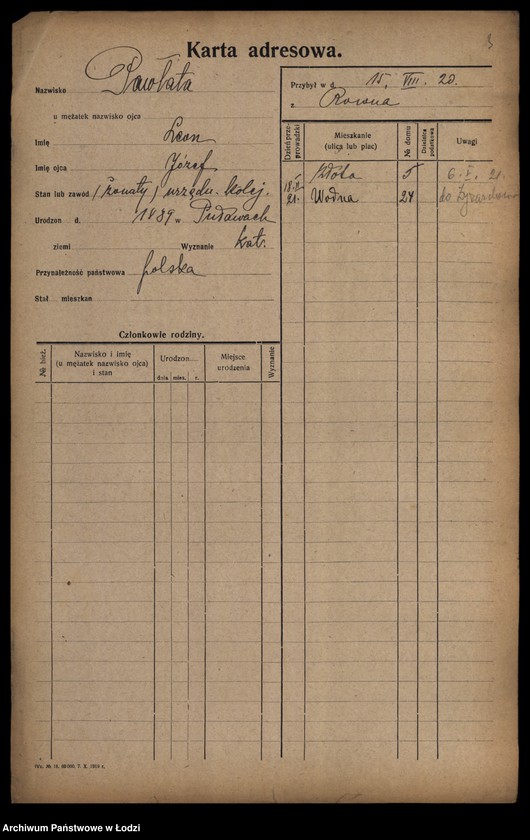 3
Karta adresowa.
Nazwisko Pawłata
u mężatek nazwisko ojca
Imię Leon
Imię ojca Józef
Stan lub zawód (żonaty) urzędn. kolej.
Urodzon d. 1889 w Puławach
ziemi Wyznanie kat.
Przynależność państwowa polska
Stał. mieszkan
Przybył w d. 15. VIII. 20.
z Rowna
Dzień przeprowadzki
Mieszkanie
(ulica lub plac)
№ domu
Dzielnica
podatkowa
Uwagi
5 6. X. 21.
21. Wodna 24 do
Członkowie rodziny.
№ bież.
Nazwisko i imię
(u mężatek nazwisko ojca)
i stan
Urodzon
dnia mies. r.
Miejsce
urodzenia
Wyznanie
Archiwum Państwowe w Łodzi